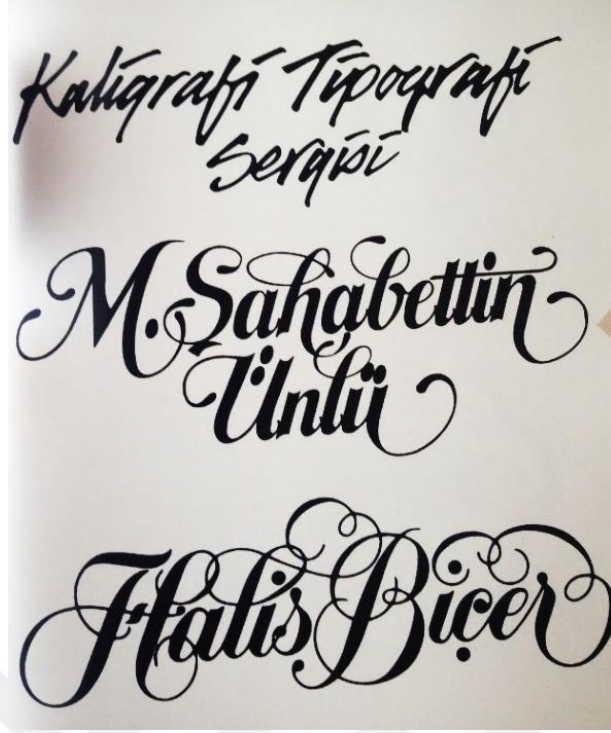 Kaligrafi Tipografi
Sergisi
M. Şahabettin
Ünlü
Halis Biçer